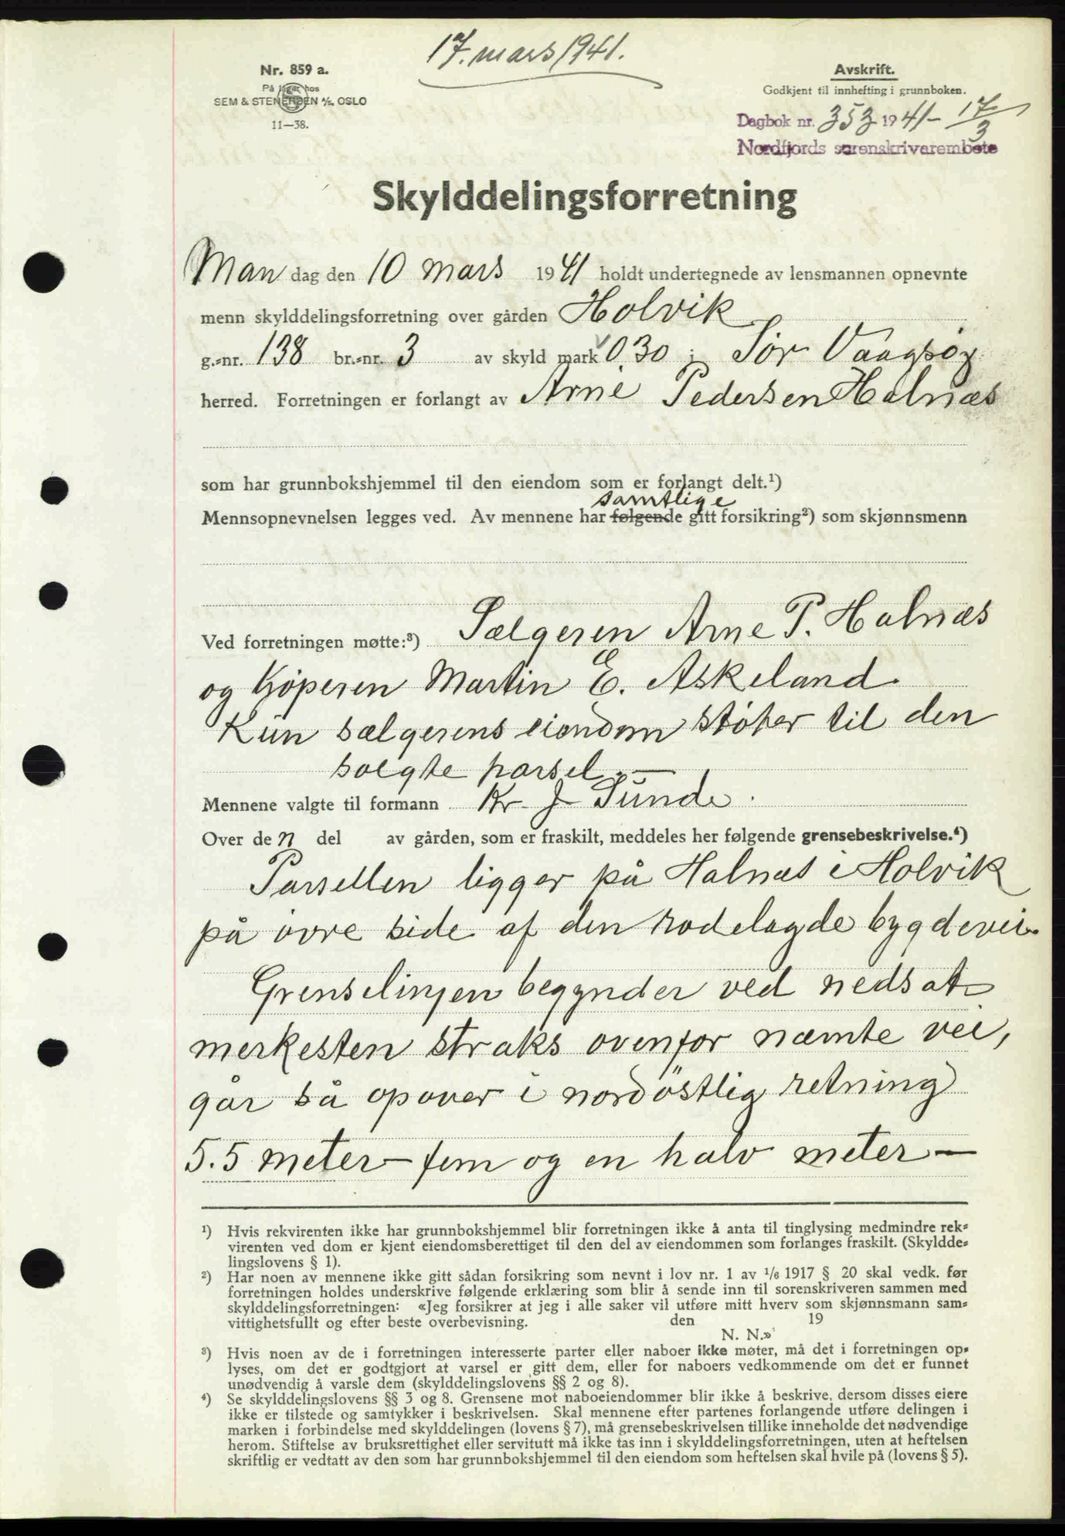 17. mars 1941.
Nr. 859 a.
På lager hos
SEM & STENERSEN A/S, OSLO
11—38.
Avskrift.
Godkjent til innhefting i grunnboken.
Dagbok nr. 353 1941- 17/3
Nordfjords sorenskriverembete
Skylddelingsforretning
Man dag den 10 mars 1941 holdt undertegnede av lensmannen opnevnte
menn skylddelingsforretning over gården Holvik
g.-nr. 138 br.-nr. 3 av skyld mark 0.30 i Sør Vaagsøy
herred. Forretningen er forlangt av Arne Pedersen Halnæs
som har grunnbokshjemmel til den eiendom som er forlangt delt.¹)
samtlige
Mennsopnevnelsen legges ved. Av mennene har følgende gitt forsikring²) som skjønnsmenn
Ved forretningen møtte:³) Sælgeren Arne P. Halnæs
og Kjøperen Martin E. Askeland.
Kun sælgerens eiendom støter til den
solgte parsel. —
Mennene valgte til formann Kr. J. Sunde.
Over den del av gården, som er fraskilt, meddeles her følgende grensebeskrivelse.⁴)
Parsellen ligger på Halnæs i Holvik
på øvre side af den rodelagde bygdevei.
Grenselinjen begynder ved nedsat
merkesten straks ovenfor næmte vei,
går så opover i nordøstlig retning
5.5 meter — fem og en halv meter —
¹) Hvis rekvirenten ikke har grunnbokshjemmel blir forretningen ikke å anta til tinglysing medmindre rek-
virenten ved dom er kjent eiendomsberettiget til den del av eiendommen som forlanges fraskilt. (Skyldde-
lingslovens § 1).
²) Har noen av mennene ikke gitt sådan forsikring som nevnt i lov nr. 1 av 1/6 1917 § 20 skal vedk. før
forretningen holdes underskrive følgende erklæring som blir å sende inn til sorenskriveren sammen med
skylddelingsforretningen: «Jeg forsikrer at jeg i alle saker vil utføre mitt hverv som skjønnsmann sam-
vittighetsfullt og efter beste overbevisning. den 19
N. N.»
³) Hvis noen av de i forretningen interesserte parter eller naboer ikke møter, må det i forretningen op-
lyses, om det er godtgjort at varsel er gitt dem, eller for naboers vedkommende om det er funnet
unødvendig å varsle dem (skylddelingslovens §§ 2 og 8).
⁴) Se skylddelingslovens §§ 3 og 8. Grensene mot naboeiendommer blir ikke å beskrive, dersom disses eiere
ikke er tilstede og samtykker i beskrivelsen. Skal mennene efter partenes forlangende utføre delingen i
marken i forbindelse med skylddelingen (lovens § 7), må grensebeskrivelsen tillike inneholde det nødvendige
herom. Stiftelse av bruksrettighet eller servitutt må ikke tas inn i skylddelingsforretningen, uten at heftelsen
skriftlig er vedtatt av den som har grunnbokshjemmel til den eiendom som heftelsen skal hvile på (lovens § 5).